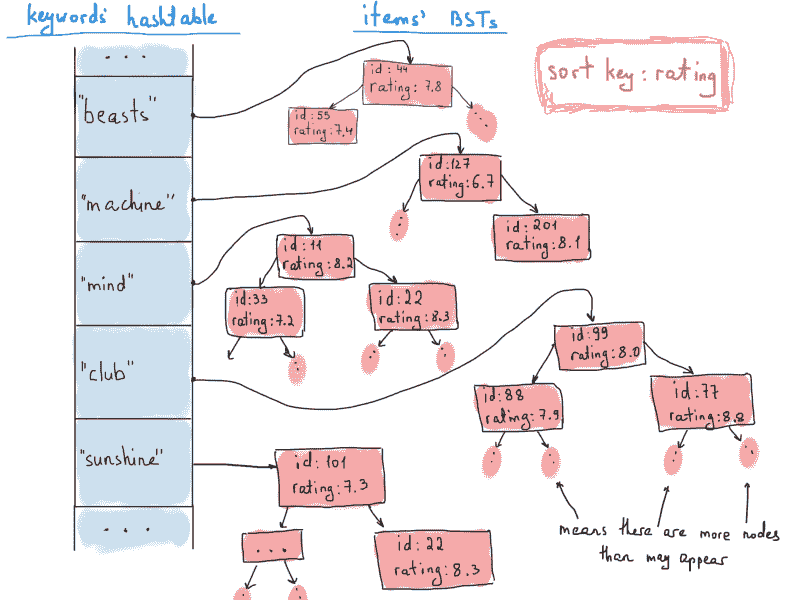 keywords' hashtable
items' BSTs
sort key: rating
...
"beasts"
"machine"
"mind"
"club"
"sunshine"
...
id: 44
rating: 7.8
id: 55
rating: 7.4
id:127
rating: 6.7
id: 201
rating: 8.1
id: 11
rating: 8.2
id:33
rating: 7.2
id: 22
rating: 8.3
id: 99
rating: 8.0
id: 88
rating: 7.9
id: 77
rating: 8.8
id: 101
rating: 7.3
...
id: 22
rating: 8.3
means there are more nodes
than may appear